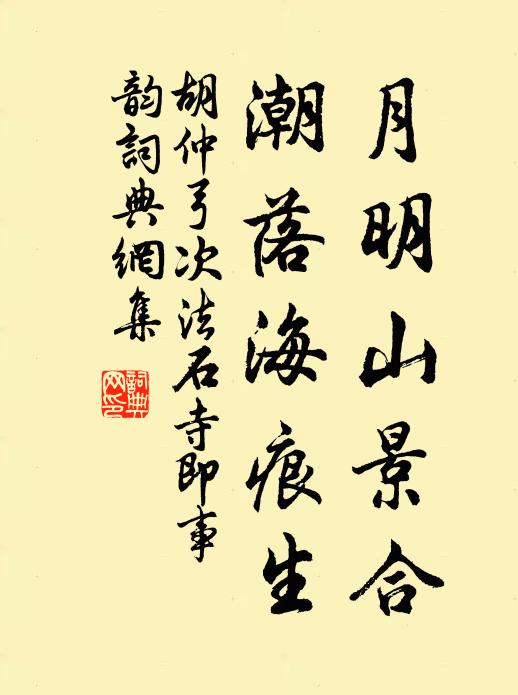 月明山景合
潮落海痕生
胡仲弓次法石寺即事
韵詞典網集
詞典網印